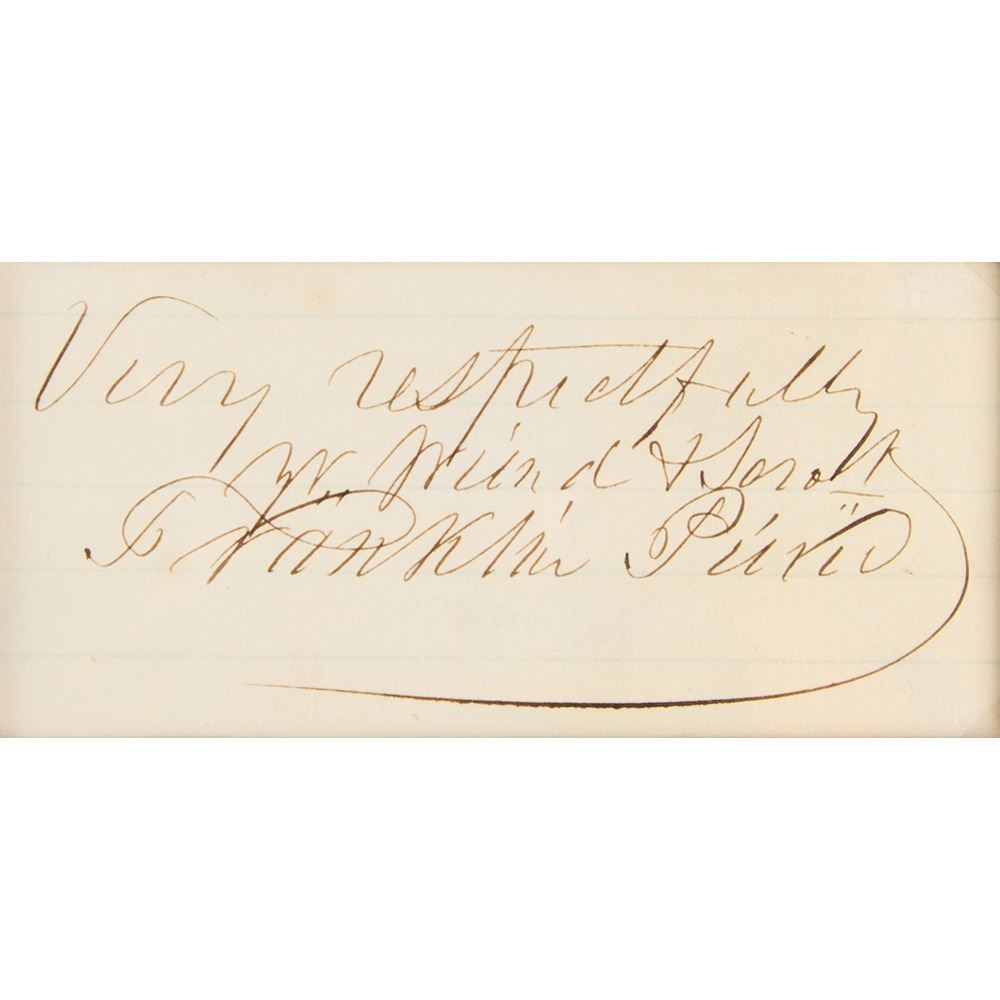 Very respectfully
yr. friend & Servt
Franklin Pierce